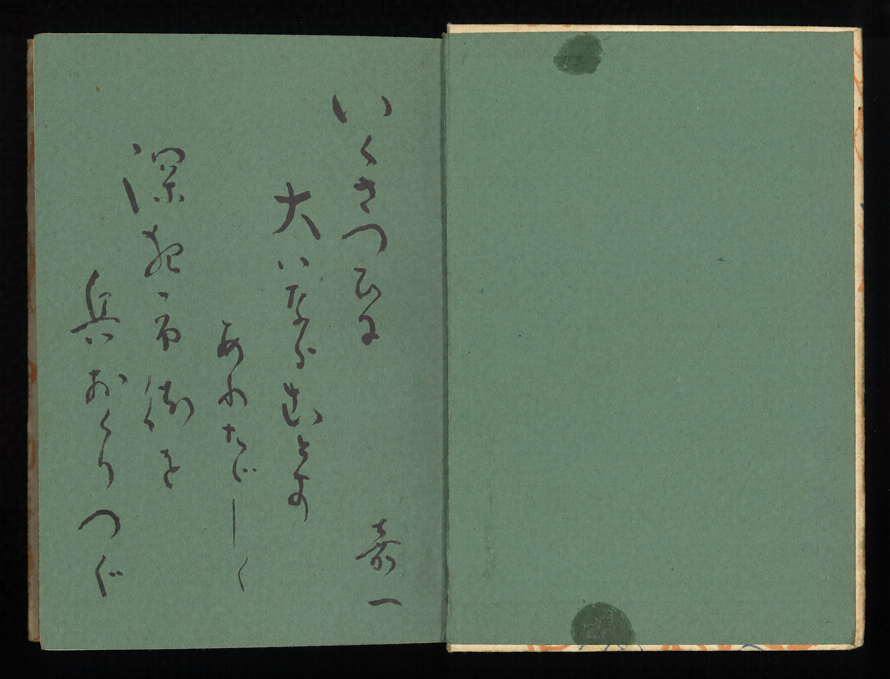 いくさつひに
大いならむとす
あわたゞしく
深夜市街を
兵おくりつぐ
嘉一